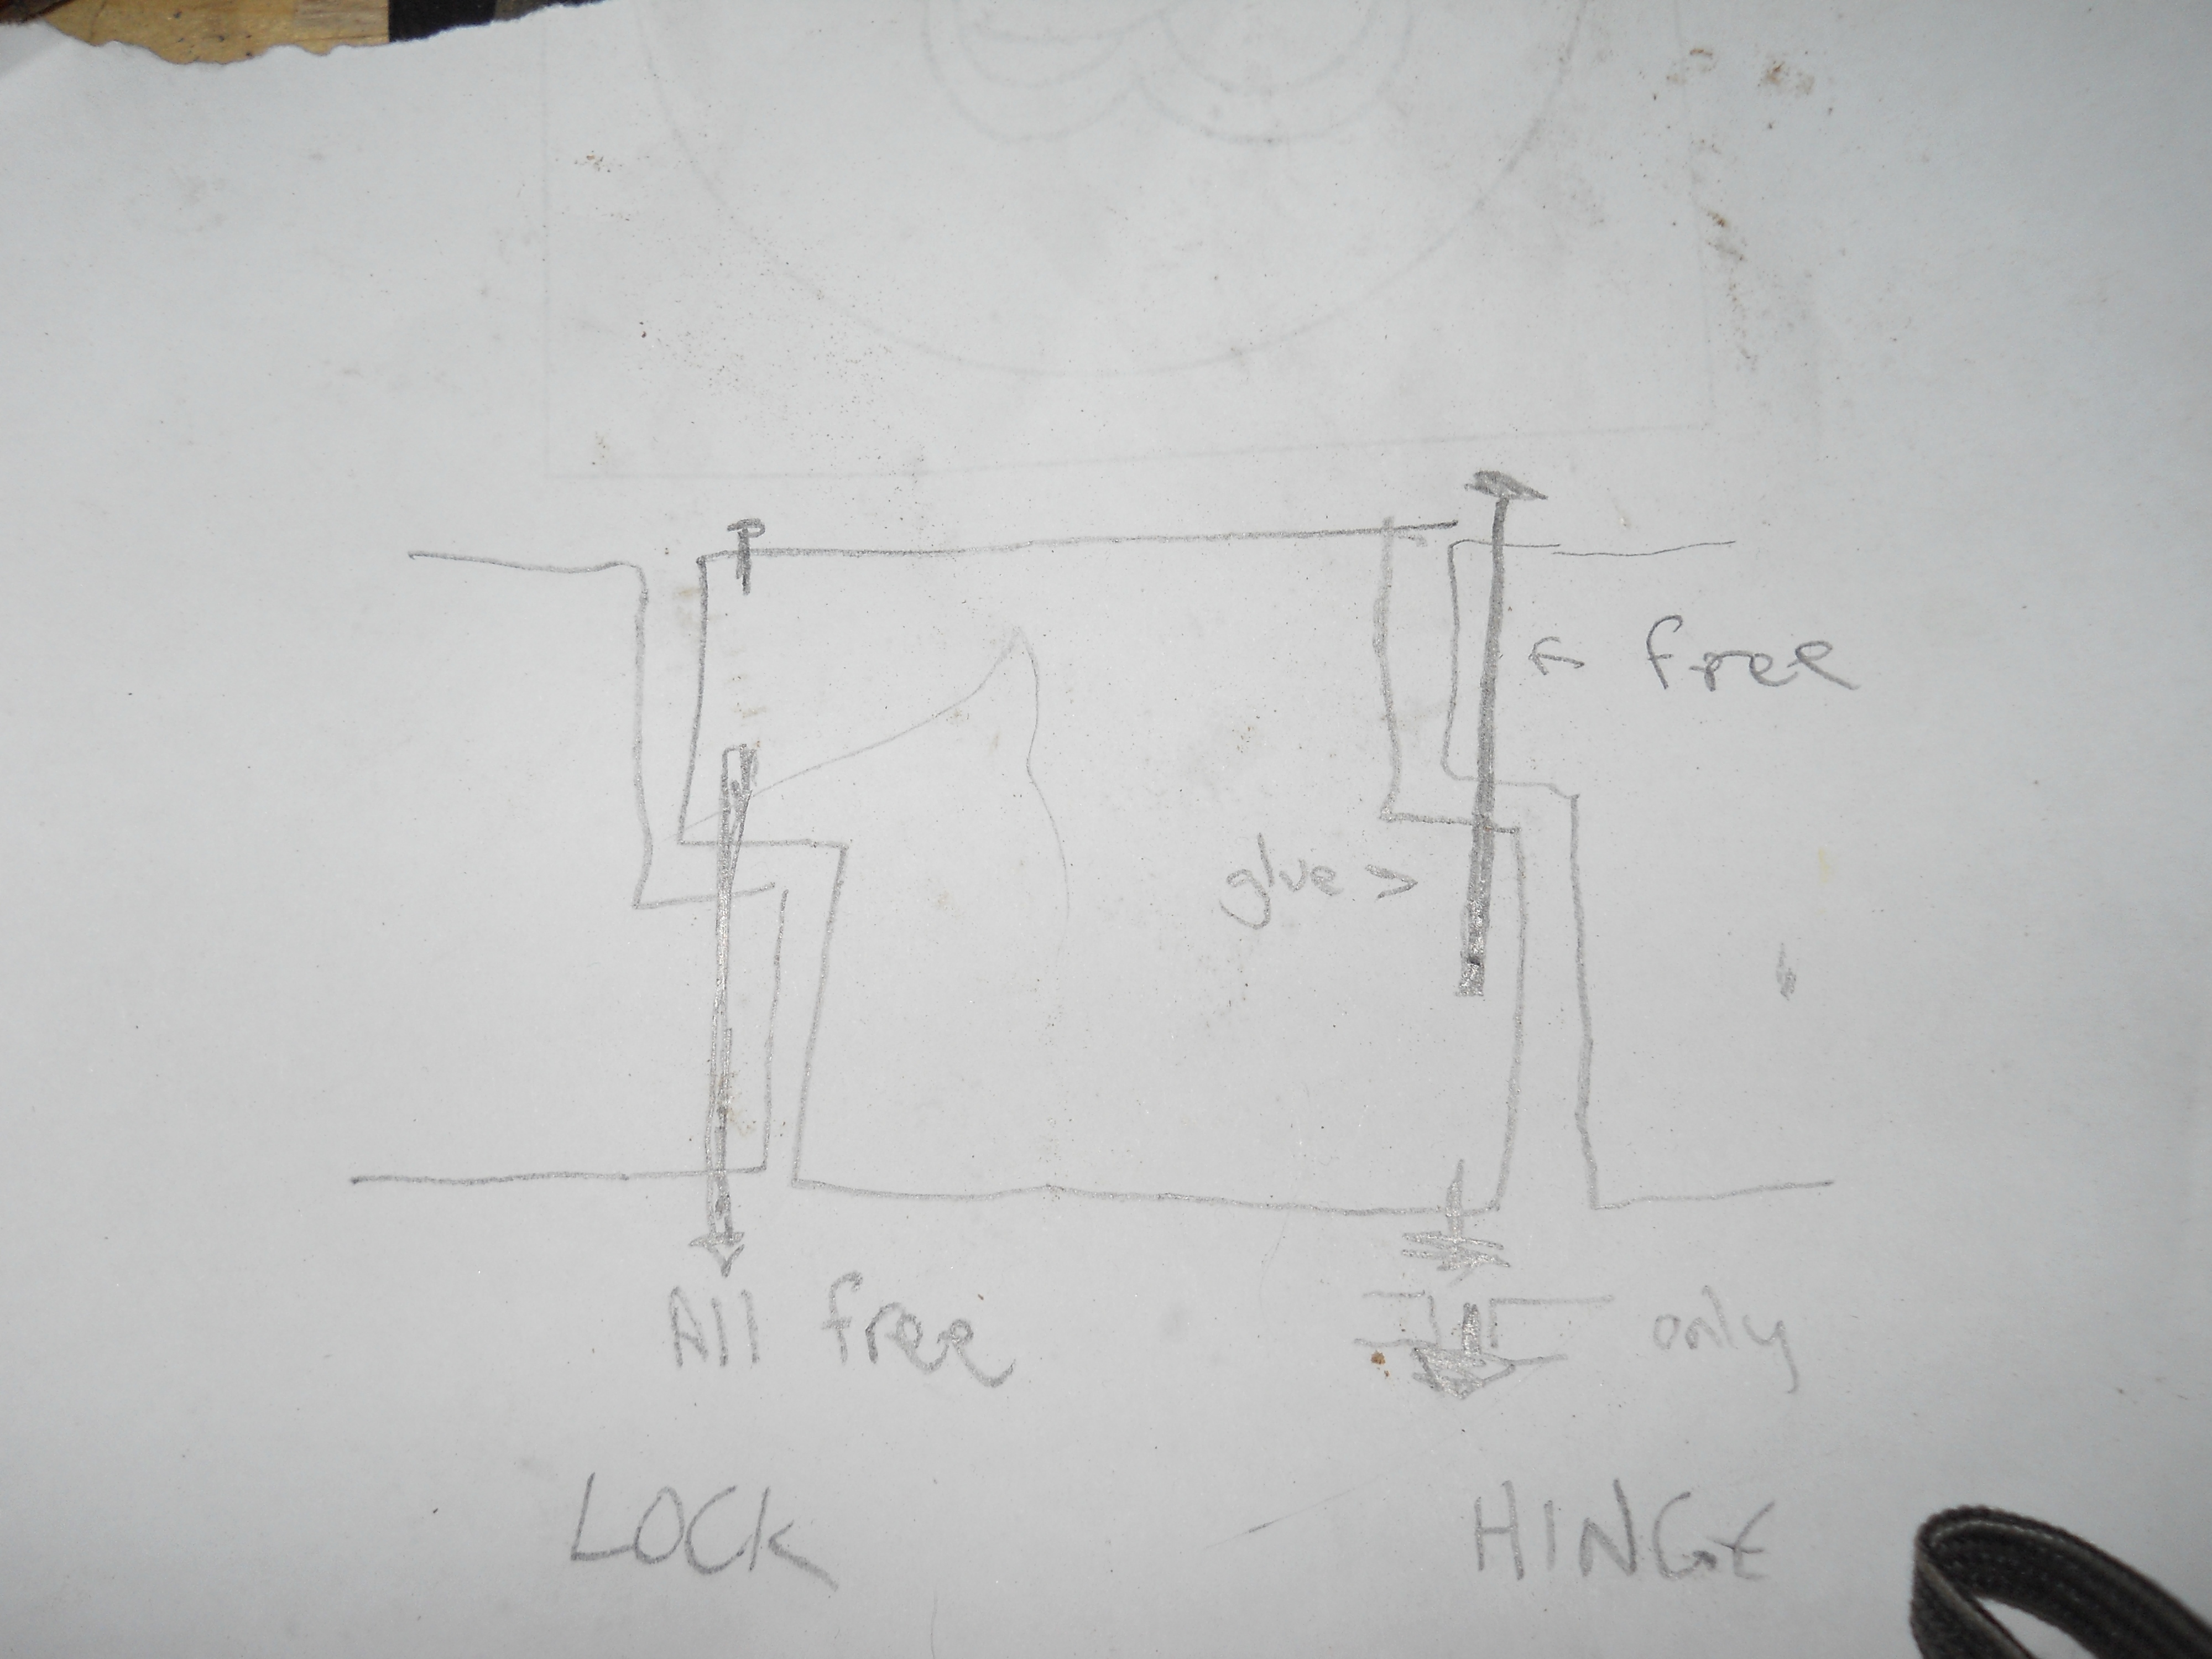 ← free
glue >
All free
only
LOCK
HINGE